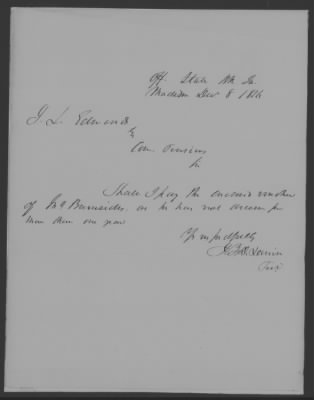 Off. State Bk Ia.
Madison Dec 8 1846
J. L. Edwards
Com. Pensions
Sir
Shall I pay the enclosed voucher
of Jas Burnsides, as he has not drawn for
more than one year
Respectfully